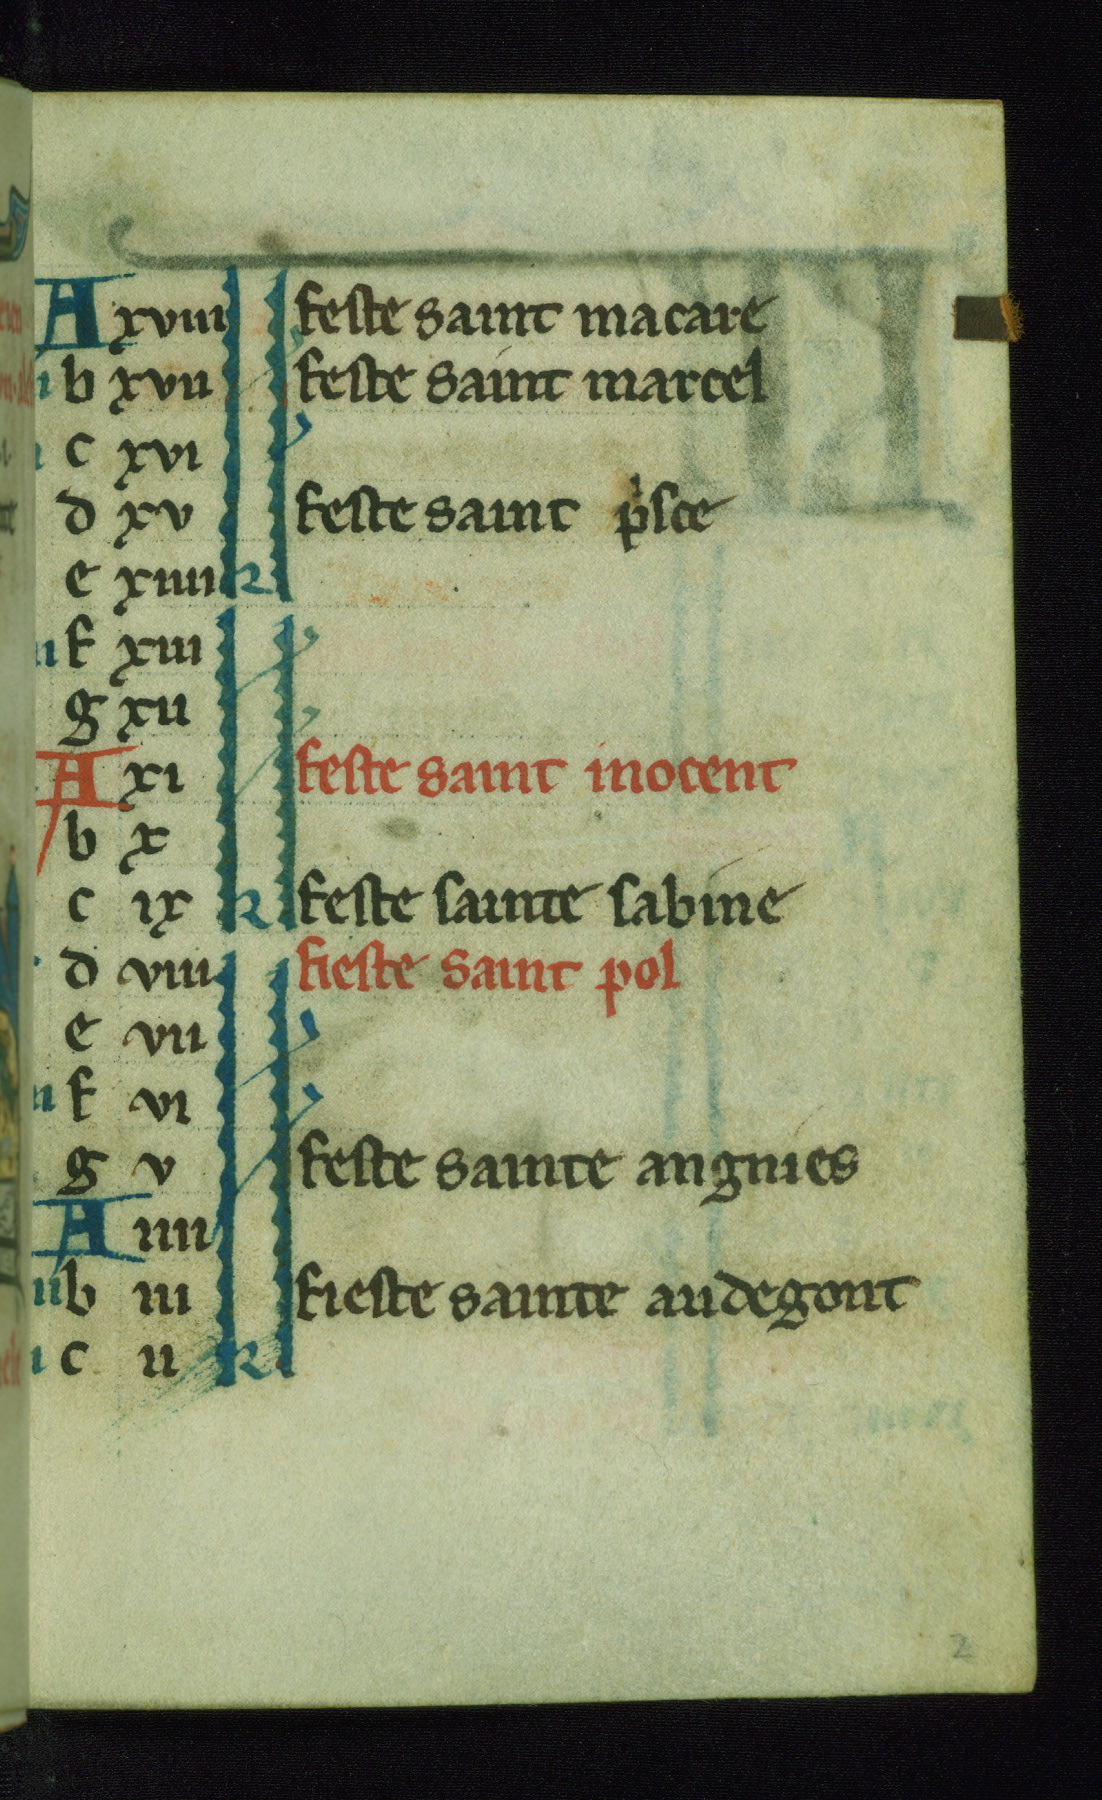 A xviii feste saint macare
b xvii feste saint marcel
c xvi
d xv feste saint p̱sce
e xiiii k
f xiii
g xii
A xi feste saint inocent
b x
c ix k feste sainte sabine
d viii fieste saint pol
e vii
f vi
g v feste sainte angnies
A iiii
b iii fieste sainte audegont
c ii k
2